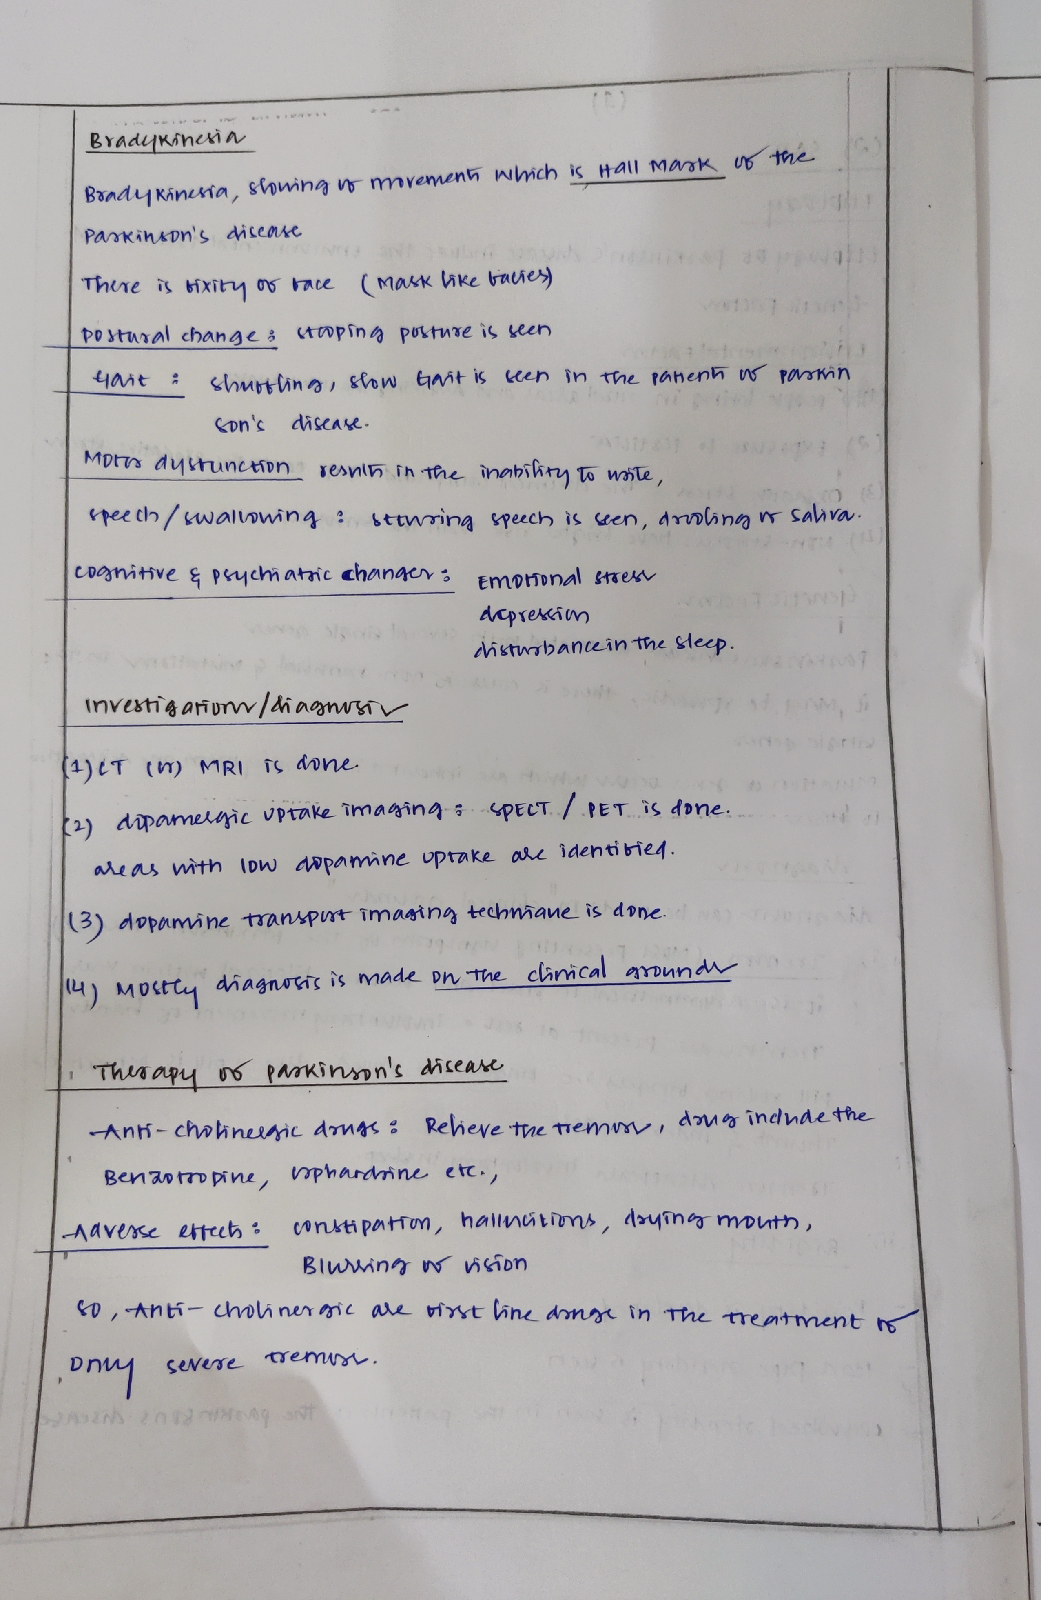 Bradykinesia
Bradykinesia, slowing of movements which is Hall Mark of the
Parkinson's disease
There is fixity of face (Mask like facies)
Postural change : stooping posture is seen
Gait : Shuffling, slow Gait is seen in the patients of parkin
son's disease.
Motor dysfunction results in the inability to write,
speech/swallowing : slurring speech is seen, drooling of saliva.
cognitive & psychiatric changes : Emotional stress
depression
disturbance in the sleep.
Investigations/diagnosis
(1) CT (or) MRI is done.
(2) dopamergic uptake imaging : SPECT / PET is done.
areas with low dopamine uptake are identified.
(3) dopamine transport imaging technique is done.
(4) Mostly diagnosis is made on the clinical grounds
Therapy of parkinson's disease
Anti-cholinergic drugs : Relieve the tremors, drug include the
Benzotropine, etc.,
Adverse effects : constipation, hallucitions, drying mouth,
Blurring of vision
so, Anti-cholinergic are first line drugs in the treatment of
only severe tremors.